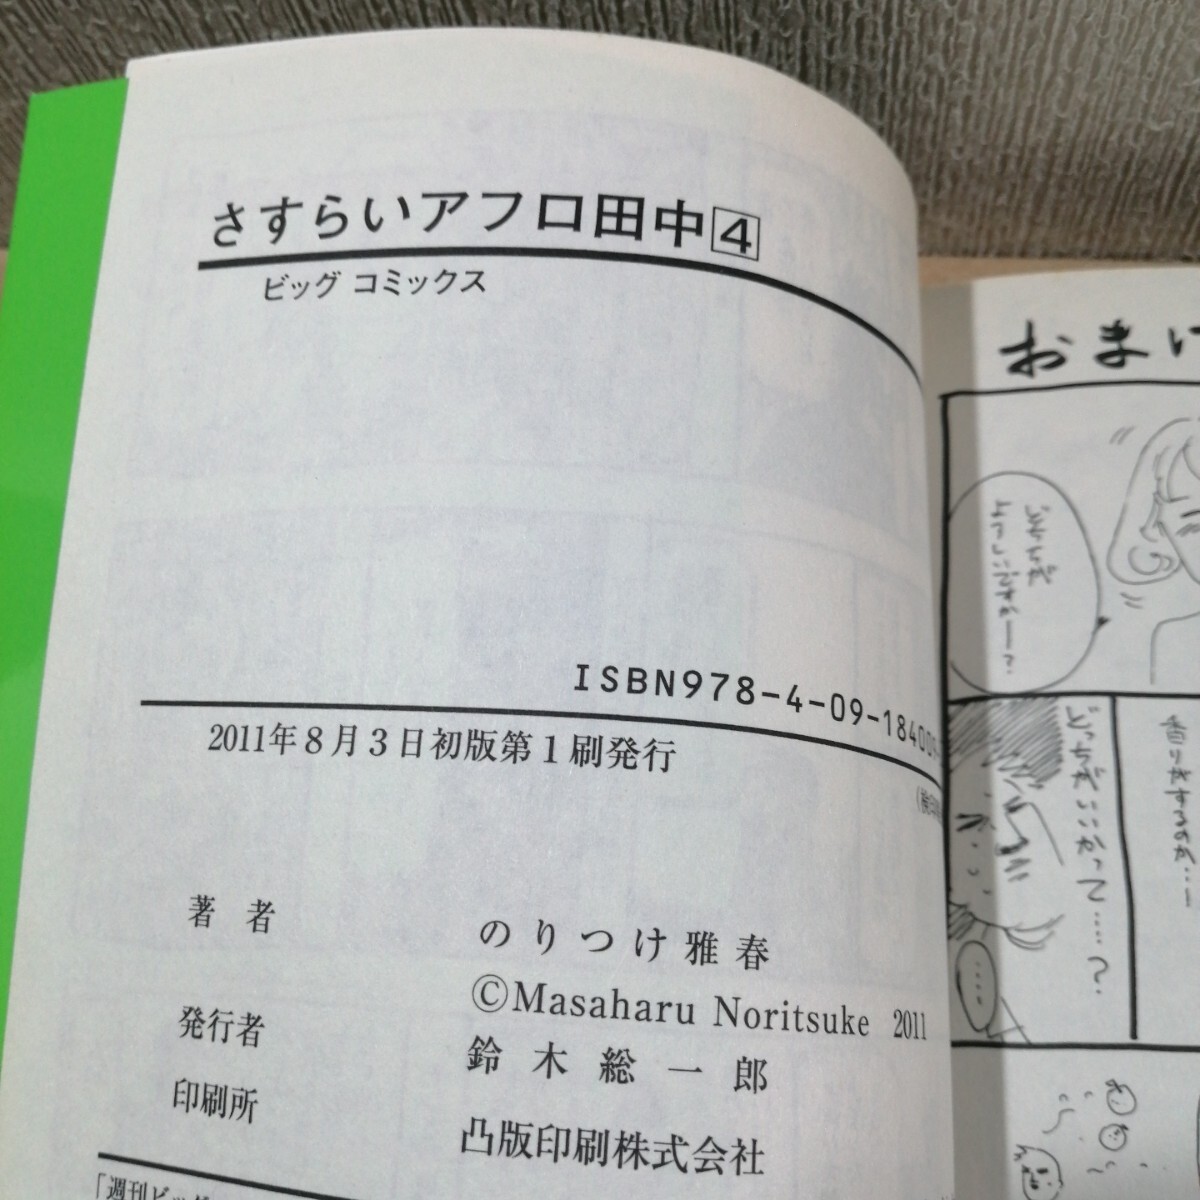 さすらいアフロ田中4
ビッグ コミックス
ISBN978-4-09-18400
2011年8月3日初版第1刷発行
著者 のりつけ雅春
©Masaharu Noritsuke 2011
発行者 鈴木総一郎
印刷所 凸版印刷株式会社
「週刊ビッグ
おまけ
どっちがいいかって……?
香りがするのか…
……